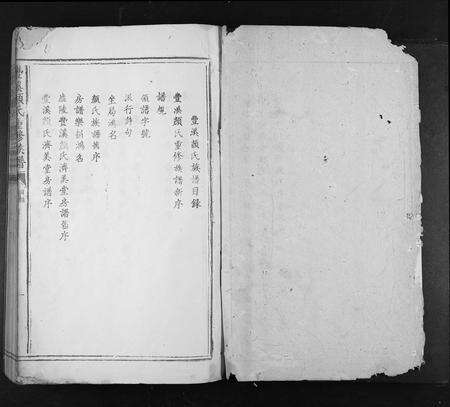 豐溪顏氏族譜目錄
豐溪顏氏重修族譜新序
譜規
領譜字號
派行詩句
坐局鴻名
顏氏族譜舊序
房譜樂捐鴻名
廬陵豐溪顏氏濟美堂房譜舊序
豐溪顏氏濟美堂房譜序